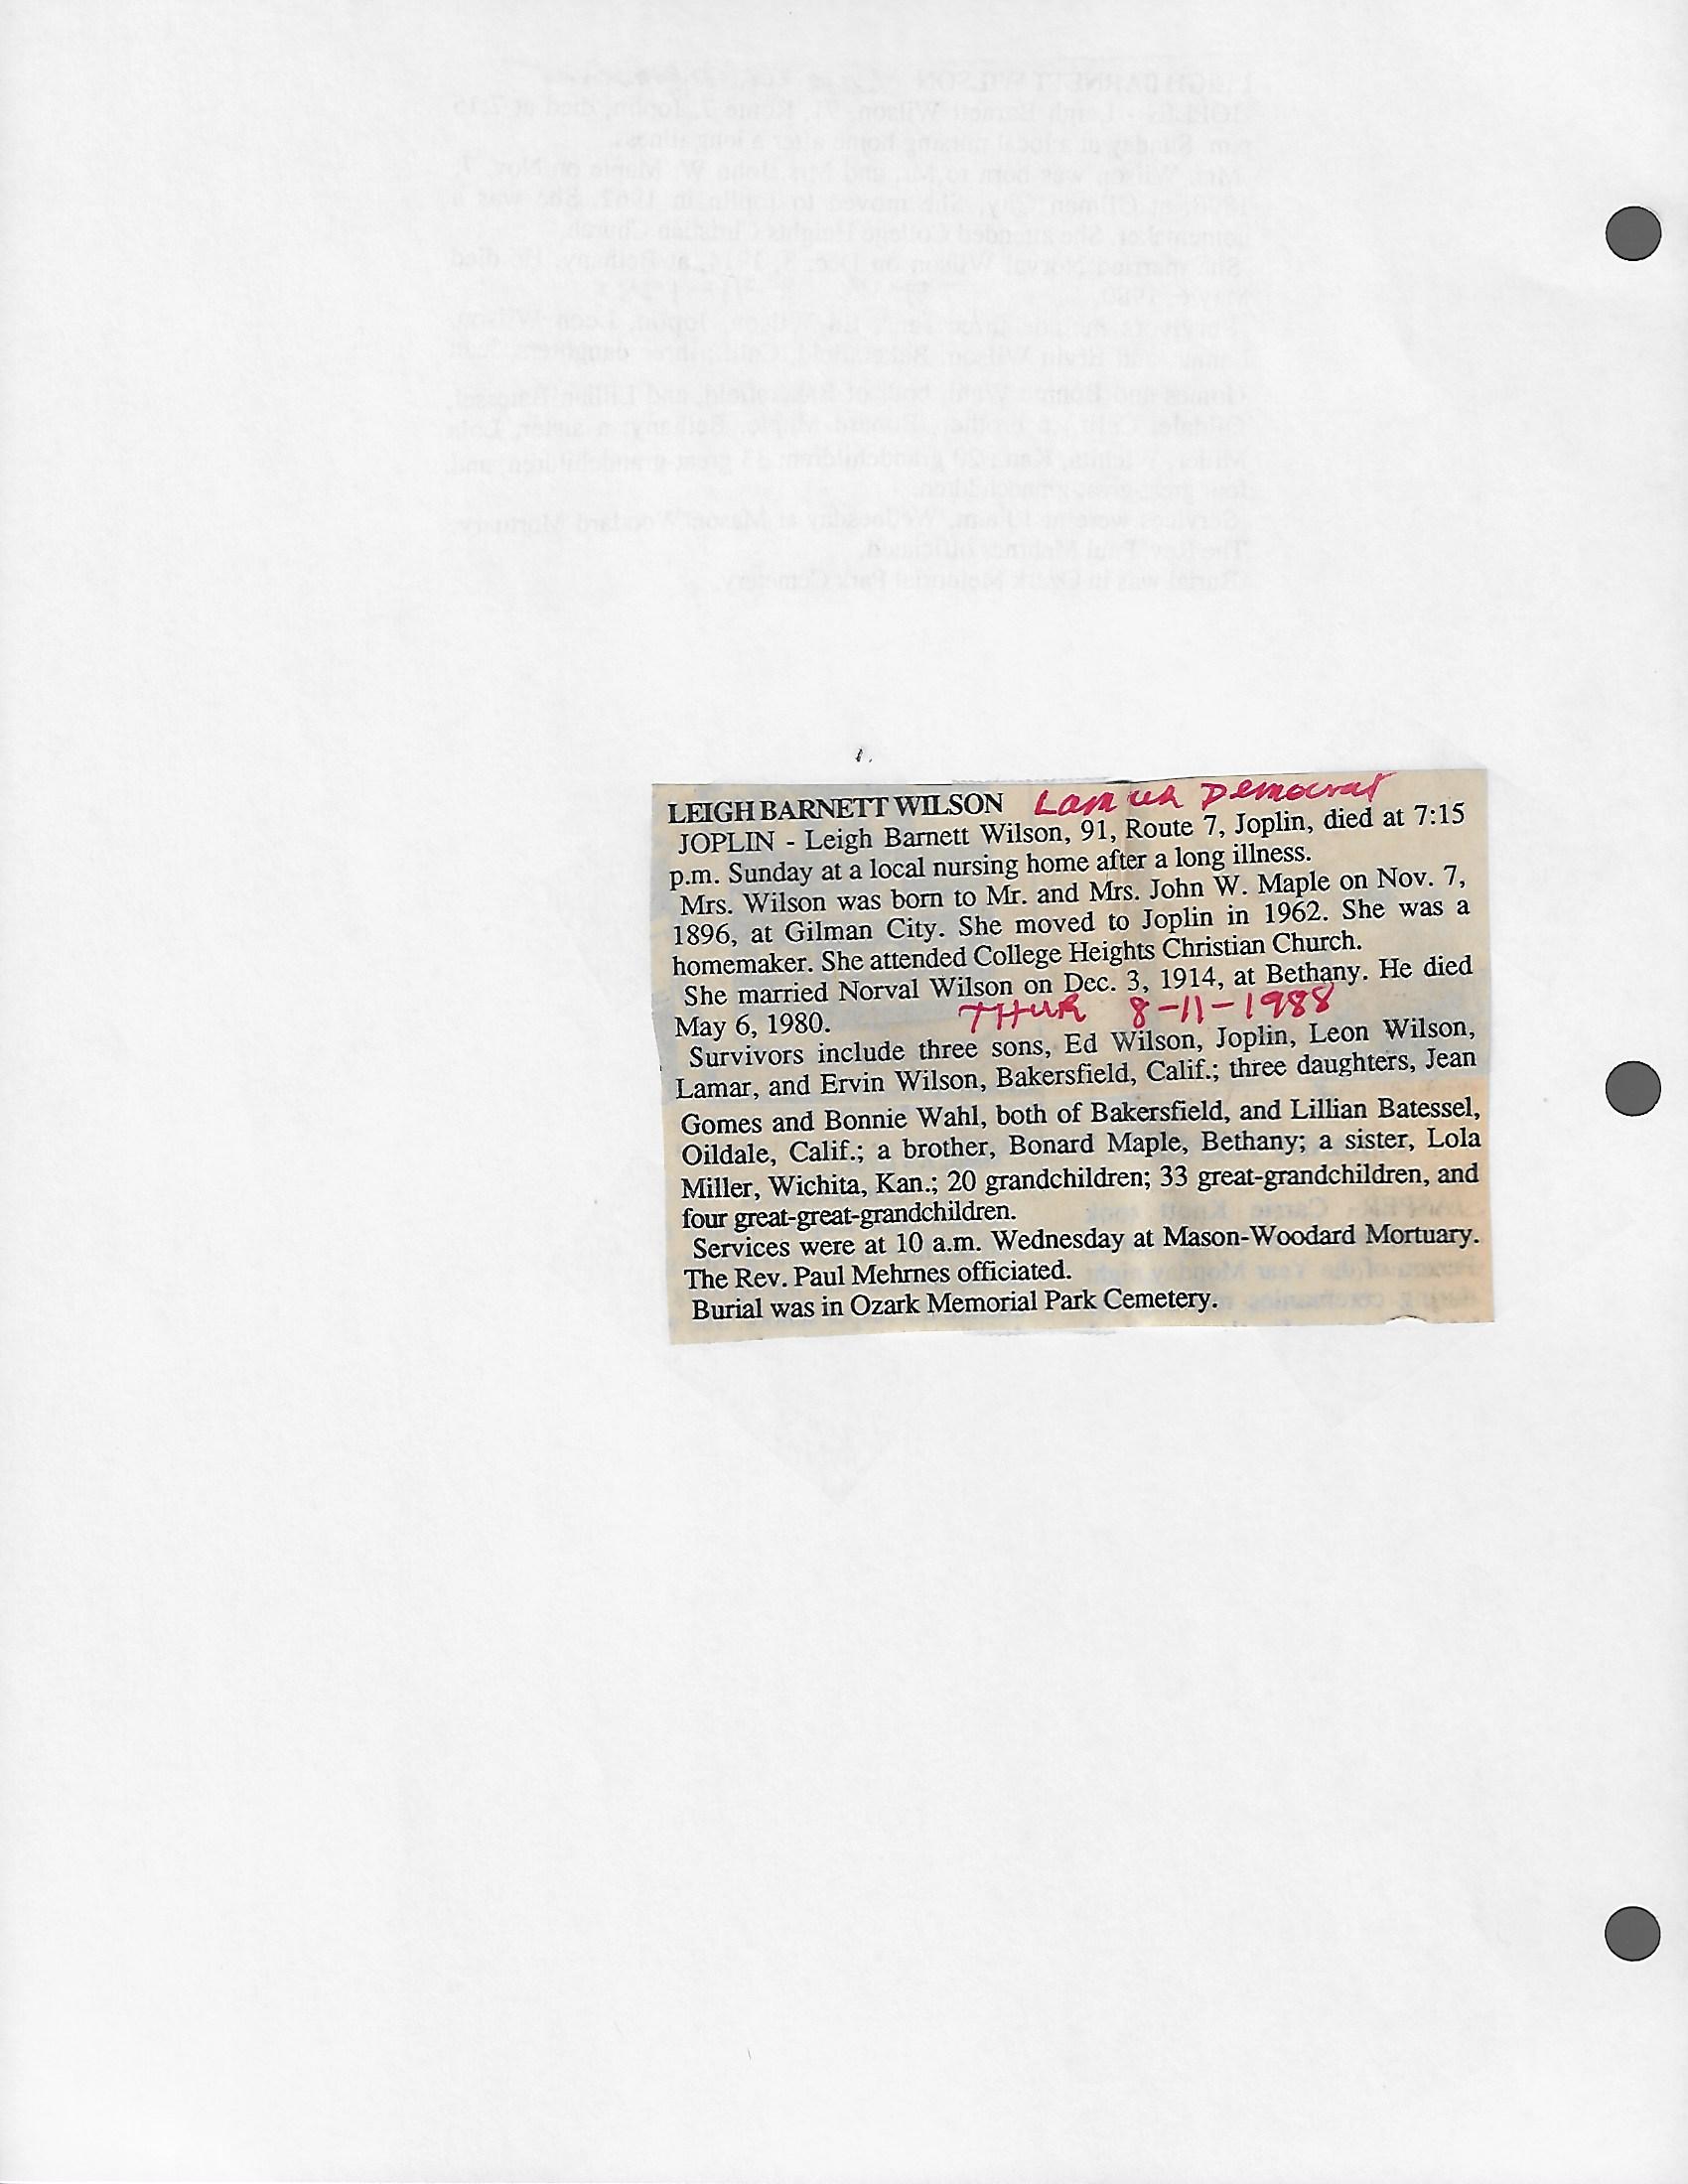 LEIGH BARNETT WILSON Lamar Democrat
JOPLIN - Leigh Barnett Wilson, 91, Route 7, Joplin, died at 7:15
p.m. Sunday at a local nursing home after a long illness.
Mrs. Wilson was born to Mr. and Mrs. John W. Maple on Nov. 7,
1896, at Gilman City. She moved to Joplin in 1962. She was a
homemaker. She attended College Heights Christian Church.
She married Norval Wilson on Dec. 3, 1914, at Bethany. He died
May 6, 1980. THUR 8-11-1988
Survivors include three sons, Ed Wilson, Joplin, Leon Wilson,
Lamar, and Ervin Wilson, Bakersfield, Calif.; three daughters, Jean
Gomes and Bonnie Wahl, both of Bakersfield, and Lillian Batessel,
Oildale, Calif.; a brother, Bonard Maple, Bethany; a sister, Lola
Miller, Wichita, Kan.; 20 grandchildren; 33 great-grandchildren, and
four great-great-grandchildren.
Services were at 10 a.m. Wednesday at Mason-Woodard Mortuary.
The Rev. Paul Mehrnes officiated.
Burial was in Ozark Memorial Park Cemetery.